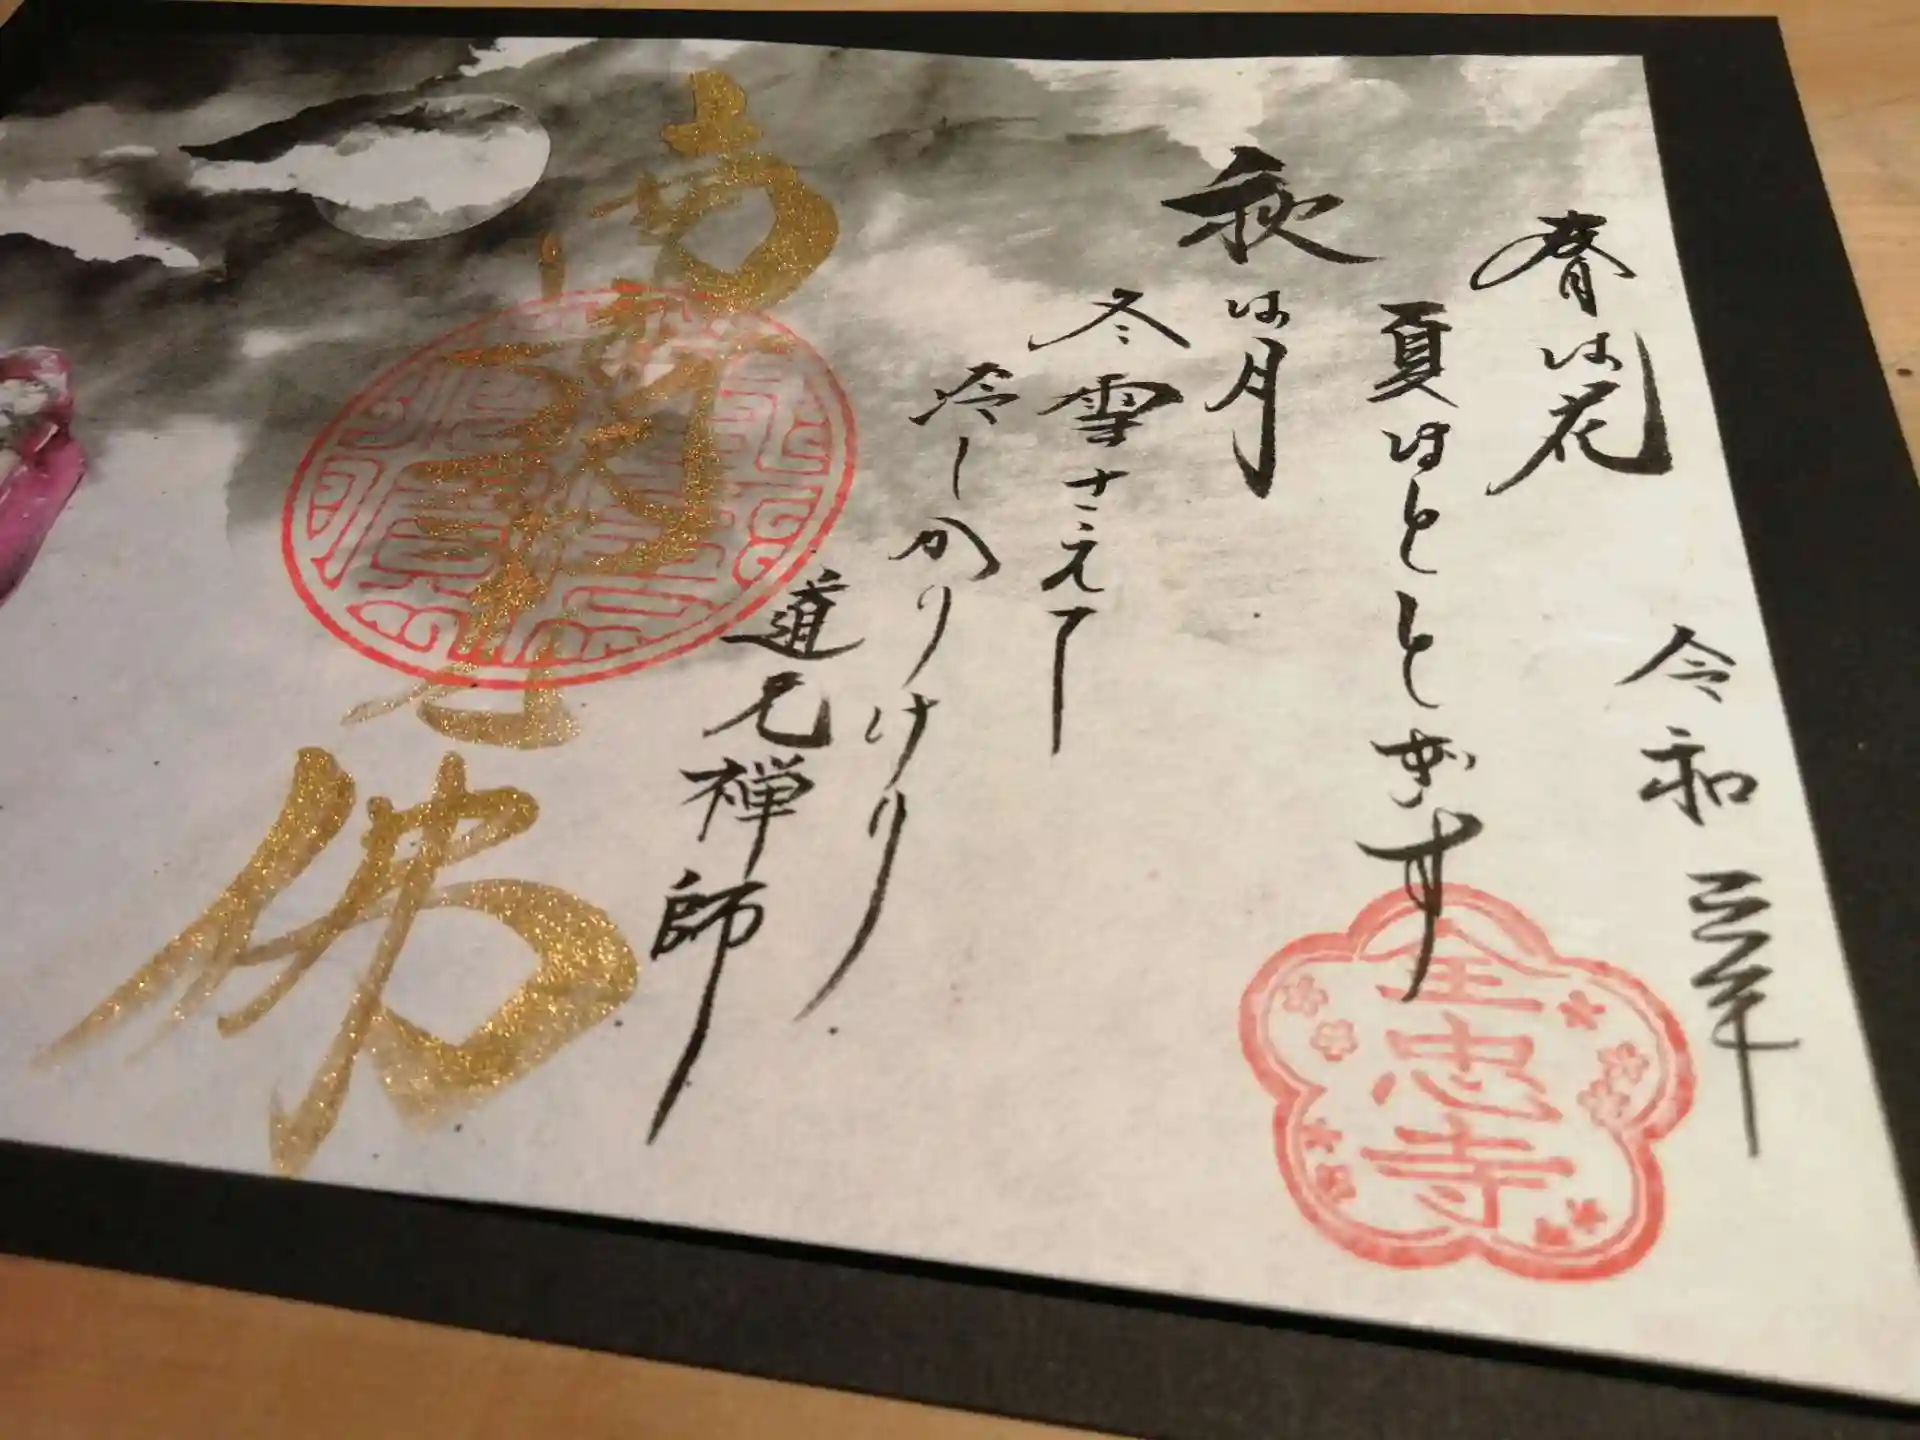 令和三年
春は花
夏ほととぎす
秋は月
冬雪さえて
冷しかりけり
道元禅師
南無釈迦牟尼佛
全忠寺